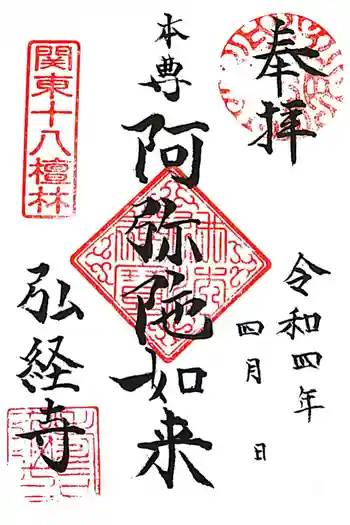 奉拝
令和四年
四月 日
本尊
阿弥陀如来
関東十八檀林
弘経寺